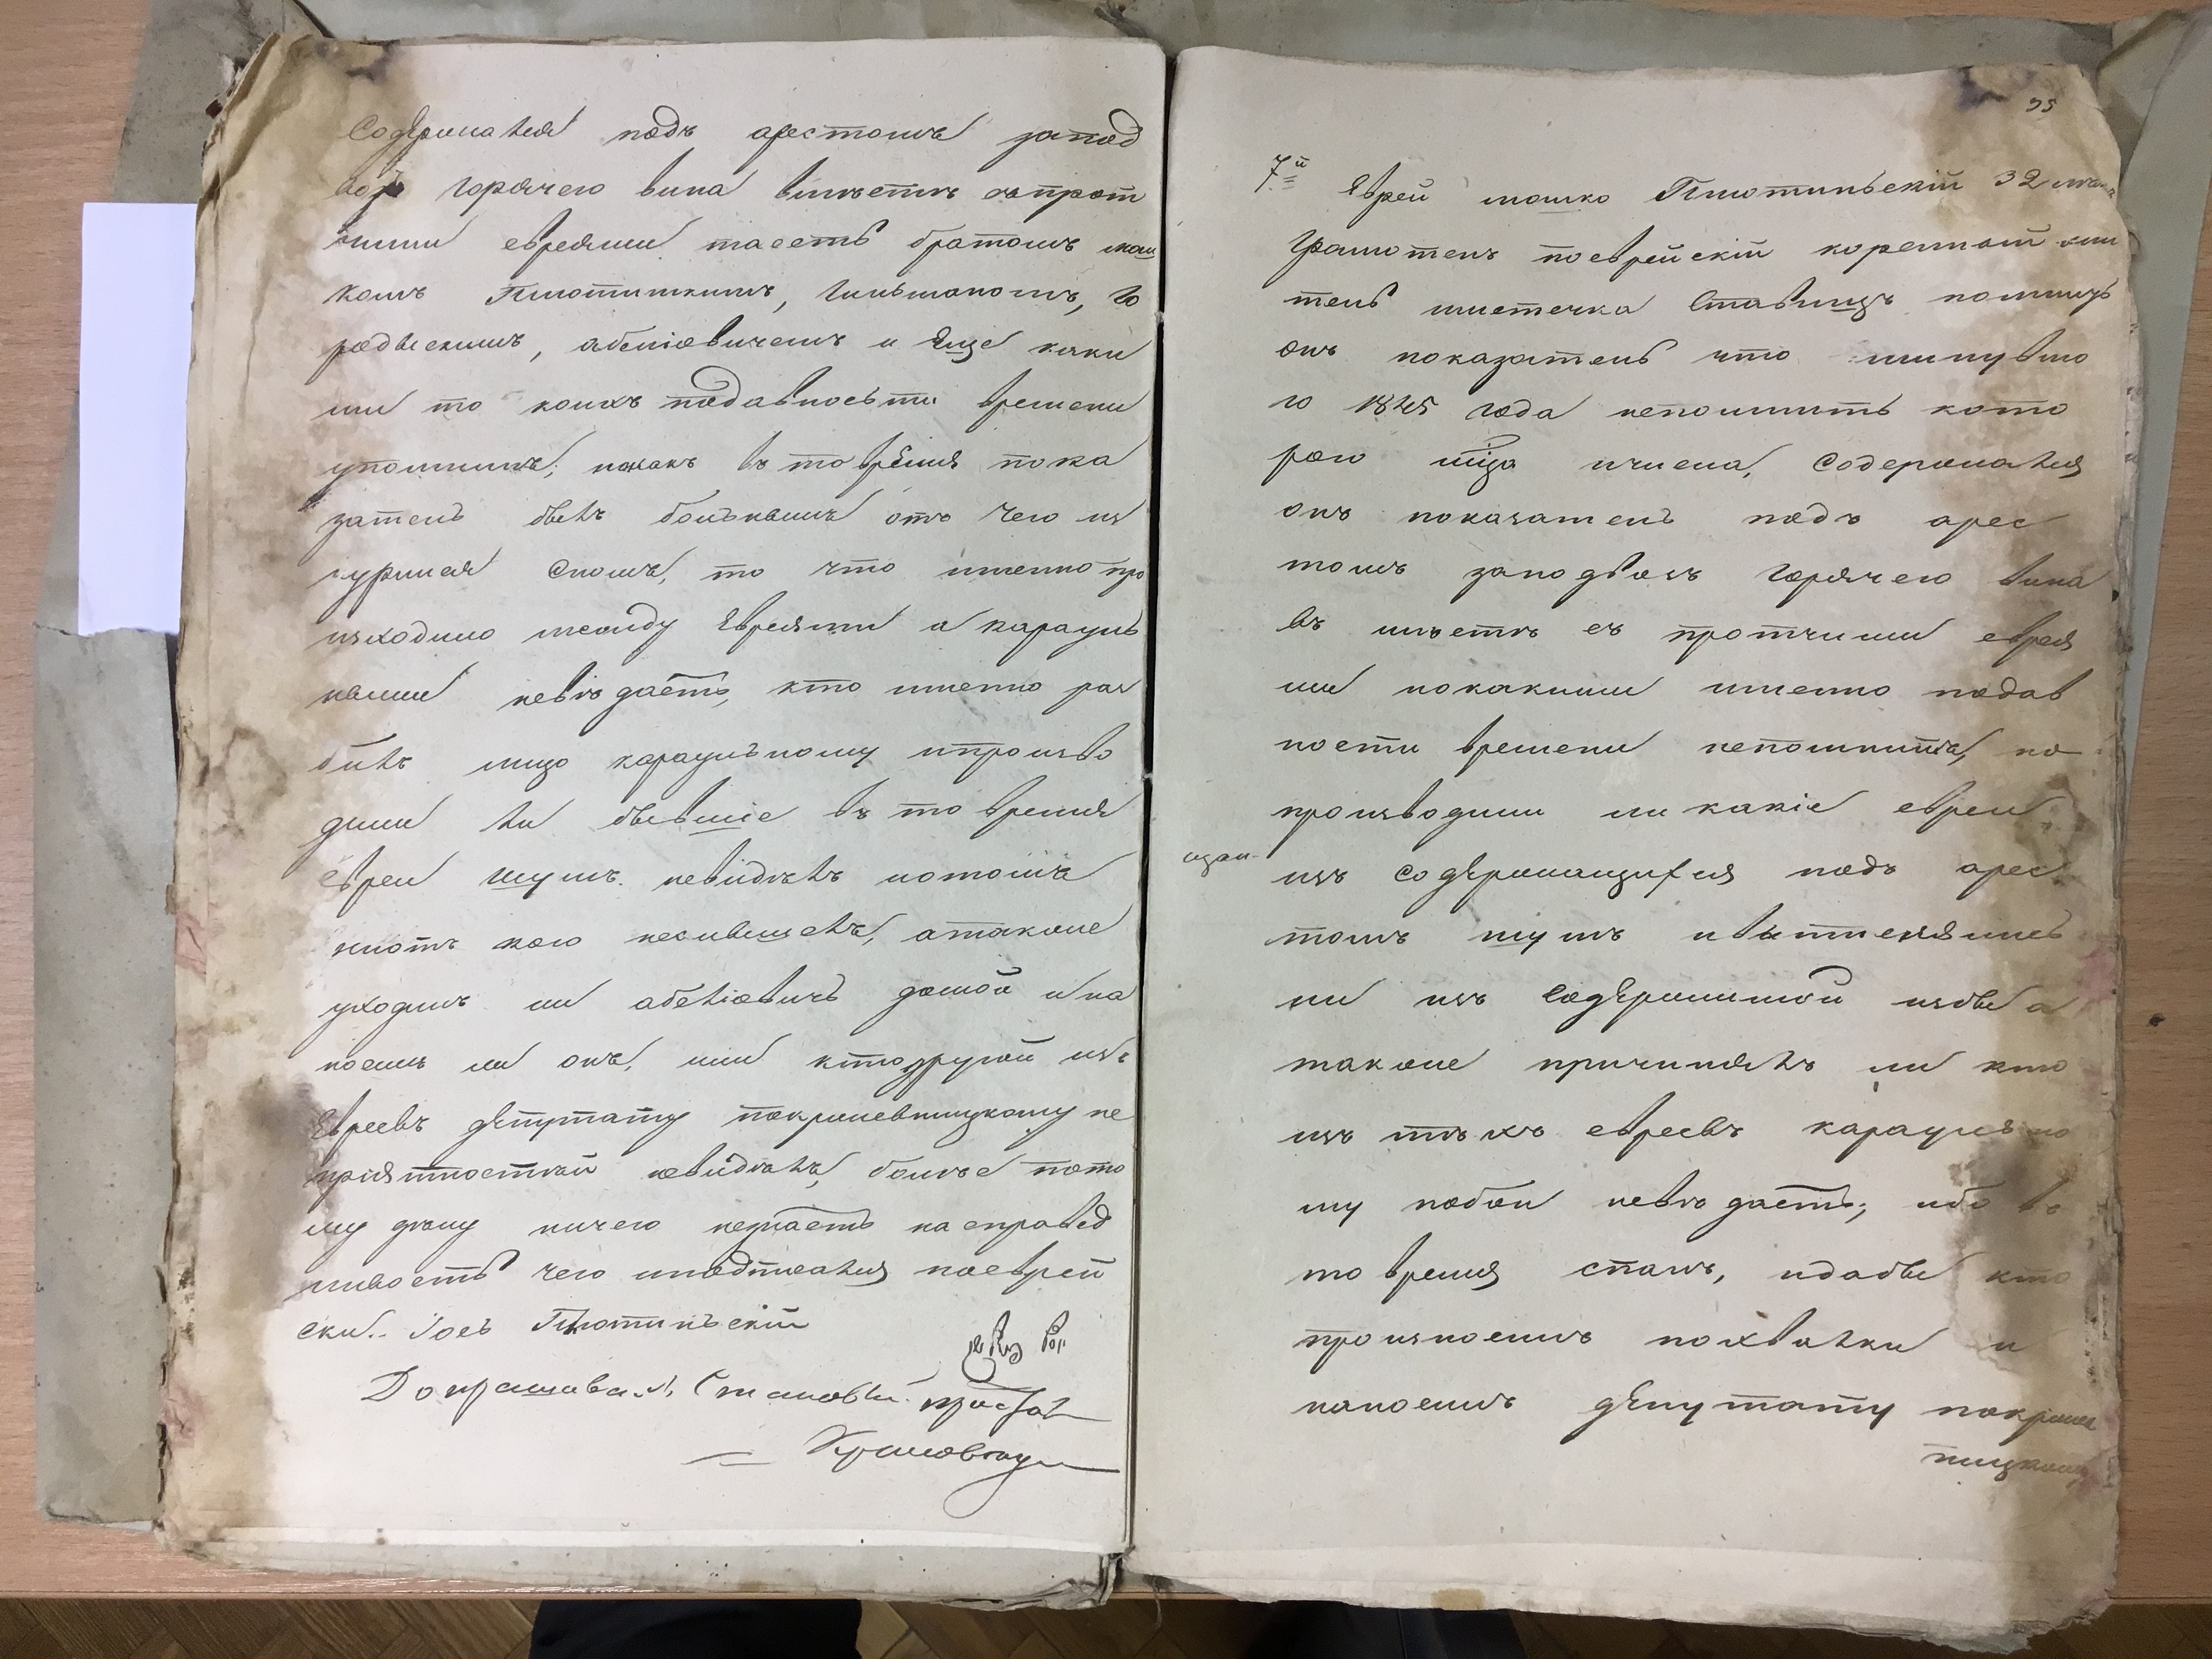 Содержался подъ арестомъ запод
возъ горячего вина вмѣстѣ съпрот
чими евреями тоесть братомъ мош
комъ Плотинскимъ, Гильманомъ, Го
родыскимъ, абелiовичемъ и Еще каки
ми то коихъ подавности времени
упомнилъ, но какъ въ то время пока
затель былъ больнымъ отъ чего из
нурился Сномъ, то что именно про
изходило между Евреями а караулъ
ными невѣдаетъ, кто именно раз
билъ лицо караульному ипроизво
дили ли бывшiе въ то время
евреи шумъ невидѣлъ иотомъ
ниотъ кого неслышелъ, атакже
уходилъ ли абелiовичъ домой и на
носилъ ли онъ, или ктодругой изъ
Евреевъ депутату покржевницкому не
прiятностей невидѣлъ, болѣе пото
му делу ничего незнаетъ насправед
ливость чего иподписался поеврей
ски. Iось Плотинскiй
Допрашивалъ Становый приставъ
35
7й Еврей мошко Плотинскiй 32 лѣтъ
Грамотенъ поеврейскiй коренной жи
тель мистечка Ставищъ помнитъ
онъ показатель что минувшо
го 1845 года непомнитъ кото
рого мца ичисла, Содержался
онъ показатель подъ арес
томъ заподвозъ горячего вина
въ мѣстѣ съ протчими еврея
ми ислкакими именно подав
ности времени непомнитъ, но
производили ли какiе евреи
изъ Содержащихся подъ арес
томъ шумъ ивытеснялись
ли изъ Содержимой избы а
также причинялъ ли кто
изъ тѣхъ евреевъ караульно
му побои невѣдаетъ; ибо въ
то время спалъ, идабы кто
произносилъ похвалки и
наносилъ депутату покржев
ницкому